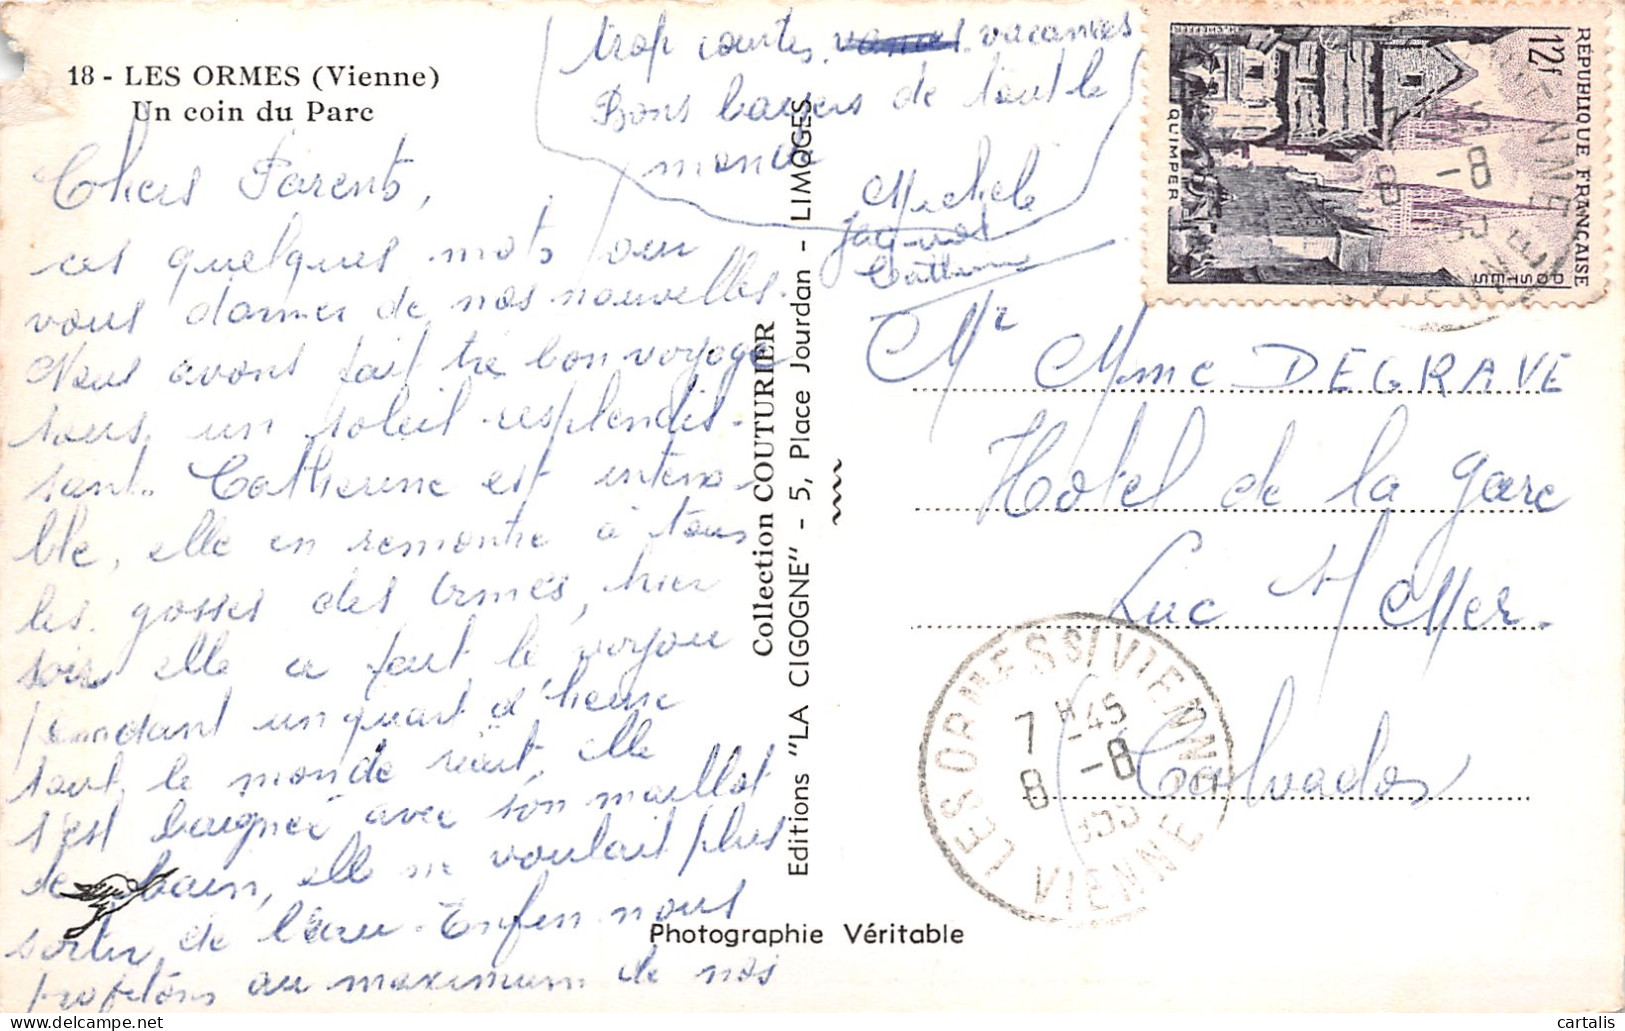 18 - LES ORMES (Vienne)
Un coin du Parc
Chers Parents,
ces quelques mots pour
vous donner de nos nouvelles.
Nous avons fait très bon voyage
sous un soleil resplendis-
sant. Catherine est intena-
ble, elle en remontre à tous
les gosses des Ormes, hier
soir elle a fait le voyou
pendant un quart d'heure
tout le monde riait, elle
s'est baignée avec son maillot
de bain, elle ne voulait plus
sortir de l'eau. Enfin nous
profitons au maximum de nos
trop courtes vacances
Bons baisers de tout le
monde
Michèle
Jacquot
Catherine
Collection COUTURIER
Editions "LA CIGOGNE" - 5, Place Jourdan - LIMOGES
Photographie Véritable
REPUBLIQUE FRANÇAISE
12f
POSTES
QUIMPER
Mr Mme DEGRAVE
Hotel de la gare
Luc s/Mer.
Calvados
LES ORMES S/VIENNE
7H45
8 -8
VIENNE